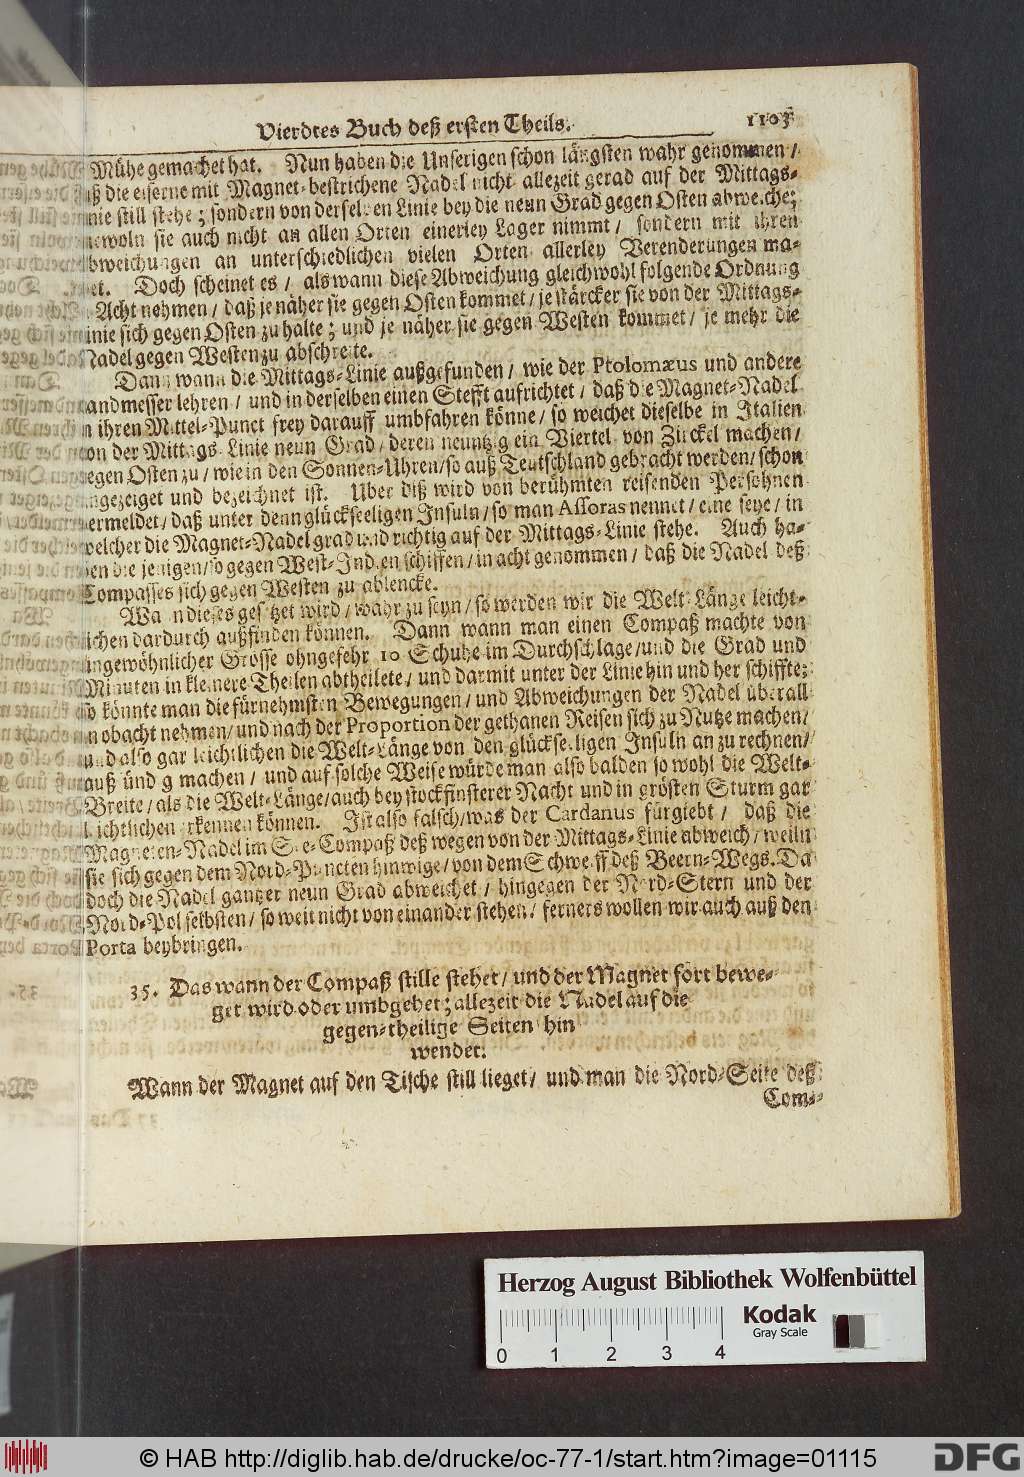 Vierdtes Buch deß ersten Theils. 1103
Mühe gemachet hat. Nun haben die Unserigen schon längsten wahr genommen /
die eiserne mit Magnet-bestrichene Nadel nicht allezeit gerad auf der Mittags-
still stehe; sondern von derselben Linie bey die neun Grad gegen Osten abweiche;
sie auch nicht an allen Orten einerley Lager nimmt / sondern mit ihren
an unterschiedlichen vielen Orten allerley Verenderungen ma-
Doch scheinet es / als wann diese Abweichung gleichwohl folgende Ordnung
Acht nehmen / daß je näher sie gegen Osten kommet / je stärcker sie von der Mittags-
sich gegen Osten zu halte; und je näher sie gegen Westen kommet / je mehr die
Nadel gegen Westen zu abschreite.
Dann wann die Mittags-Linie außgefunden / wie der Ptolomæus und andere
lehren / und in derselben einen Stefft aufrichtet / daß die Magnet-Nadel
ihren Mittel-Punct frey darauff umbfahren könne / so weichet dieselbe in Italien
der Mittags-Linie neun Grad / deren neuntzig ein Viertel von Zirckel machen /
Osten zu / wie in den Sonnen-Uhren / so auß Teutschland gebracht werden / schon
und bezeichnet ist. Uber diß wird von berühmten reisenden Persohnen
daß unter denn glückseeligen Insuln / so man Assoras nennet / eine seye / in
welcher die Magnet-Nadel grad und richtig auf der Mittags-Linie stehe. Auch ha-
die jenigen / so gegen West-Indien schiffen / in acht genommen / daß die Nadel deß
Compasses sich gegen Westen zu ablencke.
Wann dieses gesetzet wird / wahr zu seyn / so werden wir die Welt-Länge leicht-
dardurch außfinden können. Dann wann man einen Compaß machte von
ungewöhnlicher Grösse ohngefehr 10 Schuhe im Durchschlage / und die Grad und
Minuten in kleinere Theilen abtheilete / und darmit unter der Linie hin und her schiffte;
so könnte man die fürnehmsten Bewegungen / und Abweichungen der Nadel überall
obacht nehmen / und nach der Proportion der gethanen Reisen sich zu Nutze machen /
und also gar leichtlichen die Welt-Länge von den glückseeligen Insuln an zu rechnen /
außfündig machen / und auf solche Weise würde man also balden so wohl die Welt-
Breite / als die Welt-Länge / auch bey stockfinsterer Nacht und in grösten Sturm gar
leichtlichen erkennen können. Ist also falsch / was der Cardanus fürgiebt / daß die
Magneten-Nadel im See-Compaß deß wegen von der Mittags-Linie abweich / weiln
sie sich gegen dem Nord-Puncten hinwige / von dem Schweiff deß Beern-Wegs. Da
doch die Nadel gantzer neun Grad abweichet / hingegen der Nord-Stern und der
Nord-Pol selbsten / so weit nicht von einander stehen / ferners wollen wir auch auß den
Porta beybringen.
35. Das wann der Compaß stille stehet / und der Magnet fort bewe-
get wird oder umbgehet; allezeit die Nadel auf die
gegen-theilige Seiten hin
wendet.
Wann der Magnet auf den Tische still lieget / und man die Nord-Seite deß
Com-
Herzog August Bibliothek Wolfenbüttel
0 1 2 3 4
Kodak
Gray Scale
© HAB http://diglib.hab.de/drucke/oc-77-1/start.htm?image=01115
DFG